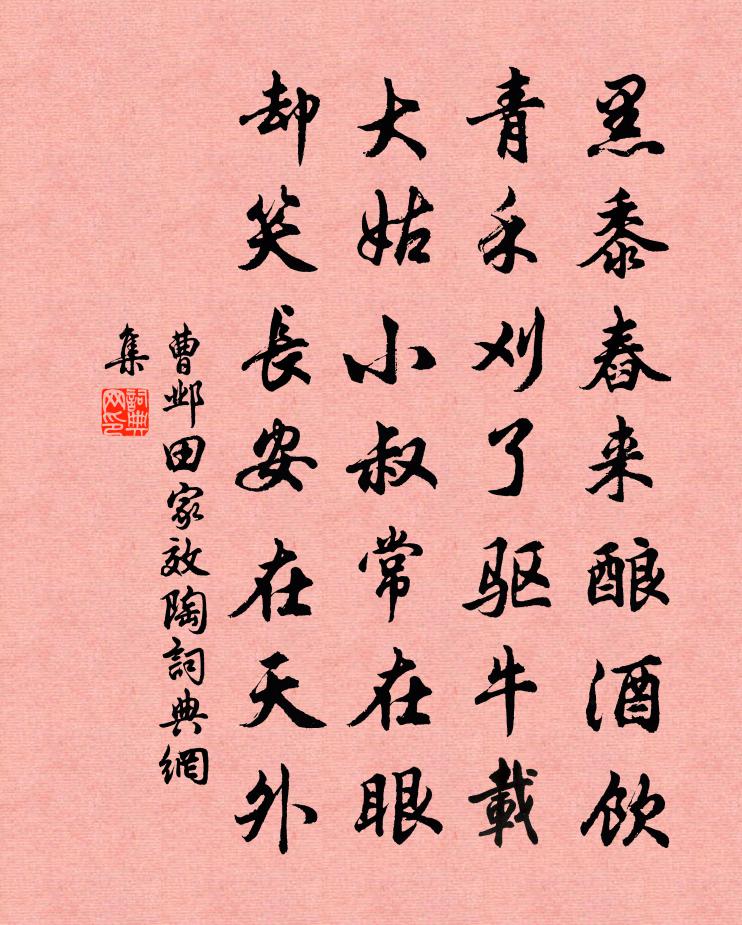 黑黍舂来酿酒饮
青禾刈了驱牛載
大姑小叔常在眼
却笑長安在天外
曹邺田家效陶詞典網
集
詞典
网印